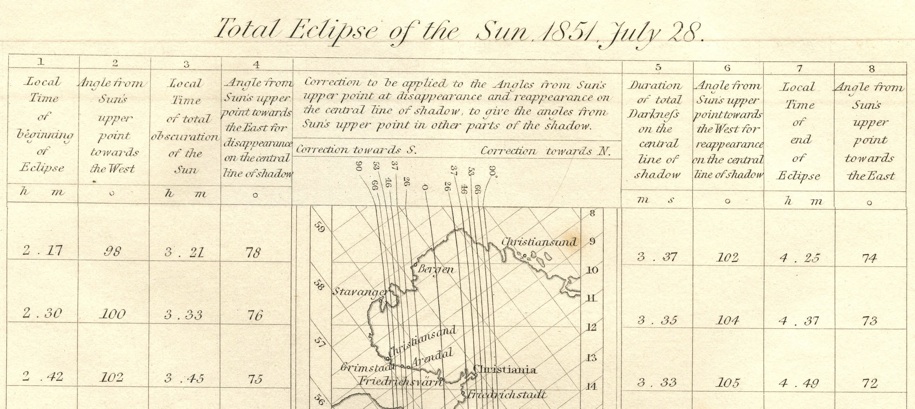 Total Eclipse of the Sun 1851. July 28.
1 2 3 4 5 6 7 8
Local
Time
of
beginning
of
Eclipse
Angle from
Sun's
upper
point
towards
the West
Local
Time
of total
obscuration
of the
Sun
Angle from
Sun's upper
point towards
the East for
disappearance
on the central
line of shadow
Correction to be applied to the Angles from Sun's
upper point at disappearance and reappearance on
the central line of shadow, to give the angles from
Sun's upper point in other parts of the shadow.
Correction towards S. Correction towards N.
90 66 53 46 37 26 0 26 37 46 53 66 90
Duration
of total
Darkness
on the
central
line of
shadow
Angle from
Sun's upper
point towards
the West for
reappearance
on the central
line of shadow
Local
Time
of
end
of
Eclipse
Angle from
Sun's
upper
point
towards
the East
h m o h m o m s o h m o
2 . 17 98 3 . 21 78 3 . 37 102 4 . 25 74
2 . 30 100 3 . 33 76 3 . 35 104 4 . 37 73
2 . 42 102 3 . 45 75 3 . 33 105 4 . 49 72
59
58
57
56
8
9
10
11
12
13
14
Christiansund
Bergen
Stavanger
Christiansand
Arendal
Grimstadt
Friedrichsvärn
Christiania
Friedrichstadt